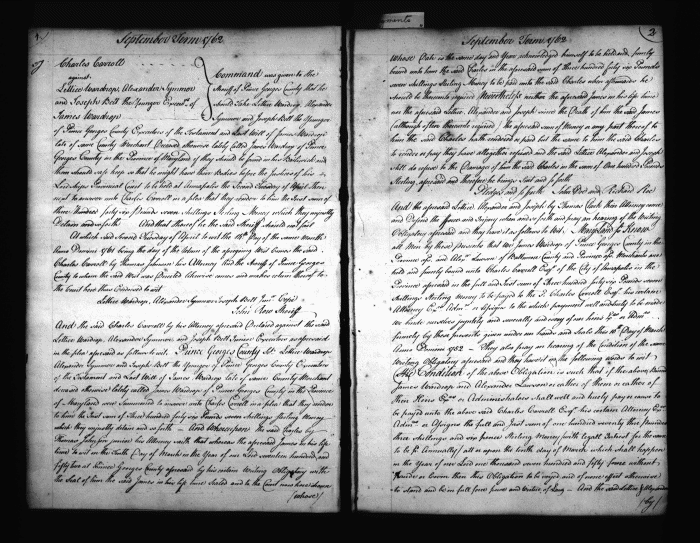 1
September Term 1762
Charles Carroll
against
Lettice Wardrop, Alexander Symmer
and Joseph Bell the Younger Execut. of
James Wardrop
Command was given to the
Sheriff of Prince Georges County that he
should take Lettice Wardrop, Alexander
Symmer and Joseph Bell the Younger
of Prince Georges County Executors of the Testament and Last Will of James Wardrop
late of same County Merchant Deceased otherwise lately called James Wardrop of Prince
Georges County in the Province of Maryland if they should be found in his Bailiwick and
them should safe keep so that he might have their Bodies before the Justices of his
Lordships Provincial Court to be held at Annapolis the Second Tuesday of April then
next to answer unto Charles Carroll in a plea that they render to him the Just sum of
three hundred forty six Pounds seven shillings Sterling Money which they unjustly
Detain and so forth And that thereof he the said Sheriff should not fail
At which said Second Tuesday of April to wit the 14th Day of the same Month
Anno Domini 1761 being the day of the return of the aforegoing Writ comes the said
Charles Carroll by Thomas Johnson his Attorney And the Sheriff of Prince Georges
County to whom the said Writ was Directed likewise comes and makes return thereof to
the Court here thus Endorsed to wit
Lettice Wardrop, Alexander Symmer Joseph Bell Junr. Cepi
John Row Sheriff
And the said Charles Carroll by his Attorney aforesaid Declared against the said
Lettice Wardrop, Alexander Symmer, and Joseph Bell Junior Executors as aforesaid
in the plea aforesaid as follows to wit. Prince Georges County Sct. Lettice Wardrop
Alexander Symmer and Joseph Bell the Younger of Prince Georges County Executors
of the Testament and Last Will of James Wardrop late of same County Merchant
deceased otherwise lately called James Wardrop of Prince Georges County in the Province
of Maryland were Summoned to answer unto Charles Carroll in a plea that they render
to him the Just sum of Three hundred forty six Pounds seven shillings Sterling Money
which they unjustly detain and so forth And Whereupon the said Charles by
Thomas Johnson junior his Attorney saith that whereas the aforesaid James in his life
time to wit on the Tenth Day of March in the Year of our Lord seventeen hundred and
fifty two at Prince Georges County aforesaid by his certain Writing Obligatory with
the Seal of him the said James in his life time sealed and to the Court now here shewn
(whose)
2
September Term 1762
Whose Date is the same day and Year acknowledged himself to be held and firmly
bound unto him the said Charles in the aforesaid sum of three hundred forty six Pounds
seven shillings Sterling Money to be paid unto the said Charles when afterwards he
should be thereunto required Nevertheless neither the aforesaid James in his life time
nor the aforesaid Lettice, Alexander and Joseph since the Death of him the said James
(although often thereunto required) the aforesaid sum of Money or any part thereof to
him the said Charles hath rendered or paid but the same to him the said Charles
to render or pay they have altogether refused and the said Lettice Alexander and Joseph
still do refuse to the Damage of him the said Charles in the sum of One hundred Pounds
Sterling aforesaid and therefore he brings suit and so forth
Pledges and so forth John Doe and Richard Roe
And the aforesaid Lettice Alexander and Joseph by Thomas Clark their Attorney come
and Defend the force and Injury when and so forth and pray an hearing of the Writing
Obligatory aforesaid and they have it as follows to Wit. Maryland ss Know
all Men by these Presents that We James Wardrop of Prince Georges County in the
Province of and Alexr. Lawson of Baltimore County and Province afd. Merchants are
held and firmly bound unto Charles Carroll Esqr. of the City of Annapolis in the
Province aforesaid in the full and Just sum of Three hundred forty six Pounds seven
Shillings Sterling Money to be paid to the sd. Charles Carroll Esqr. his certain
Attorney Exrs. Admrs. or Assigns to the which payment well and truly to be made
We binde ourselves joyntly and severally and every of our heirs Exrs. or Admrs.
firmly by these presents given under our hands and Seals this 10th. Day of March
Anno Domini 1752 – They also pray an hearing of the Condition of the same
Writing Obligatory aforesaid and they have it in the following words to wit
The Condition of the above Obligation is such that if the above Bound
James Wardrop and Alexander Lawson or either of them or either of
their Heirs Exrs. or Administrators shall well and truely pay or cause to
be payed unto the above said Charles Carroll Esqr. his certain Attorney Exrs.
Admrs. or Assigns the full and just sum of one hundred seventy three Pounds
three shillings and six pence Sterling Money with legall Intrest for the same
to be pd. Annually / all on upon the tenth day of March which shall happen
in the Year of our Lord one thousand seven hundred and fifty four without
fraude or Coven then this Obligation to be voyd and of none effect otherwise
to stand and be in full force power and virtue of Law – And the said Lettice Alexander
(by)